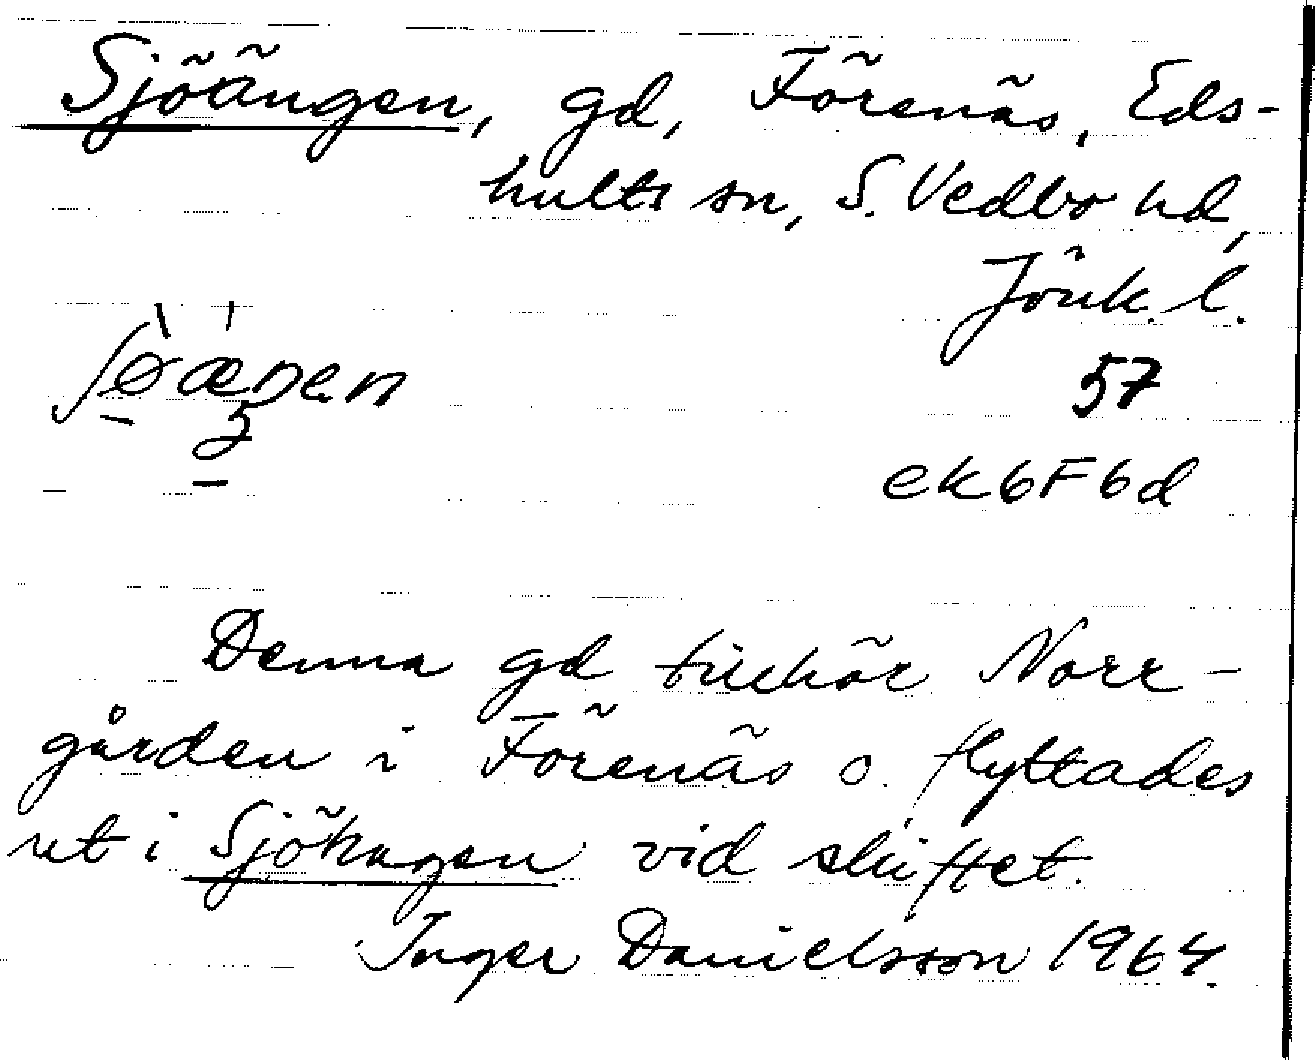 Sjöängen, gd, Förenäs, Eds-
hults sn, S. Vedbo hd,
Jönk. l.
57
ek6F6d
Denna gd tillhör Norr-
gården i Förenäs o. flyttades
ut i Sjöhagen vid skiftet.
Inger Danielsson 1964.